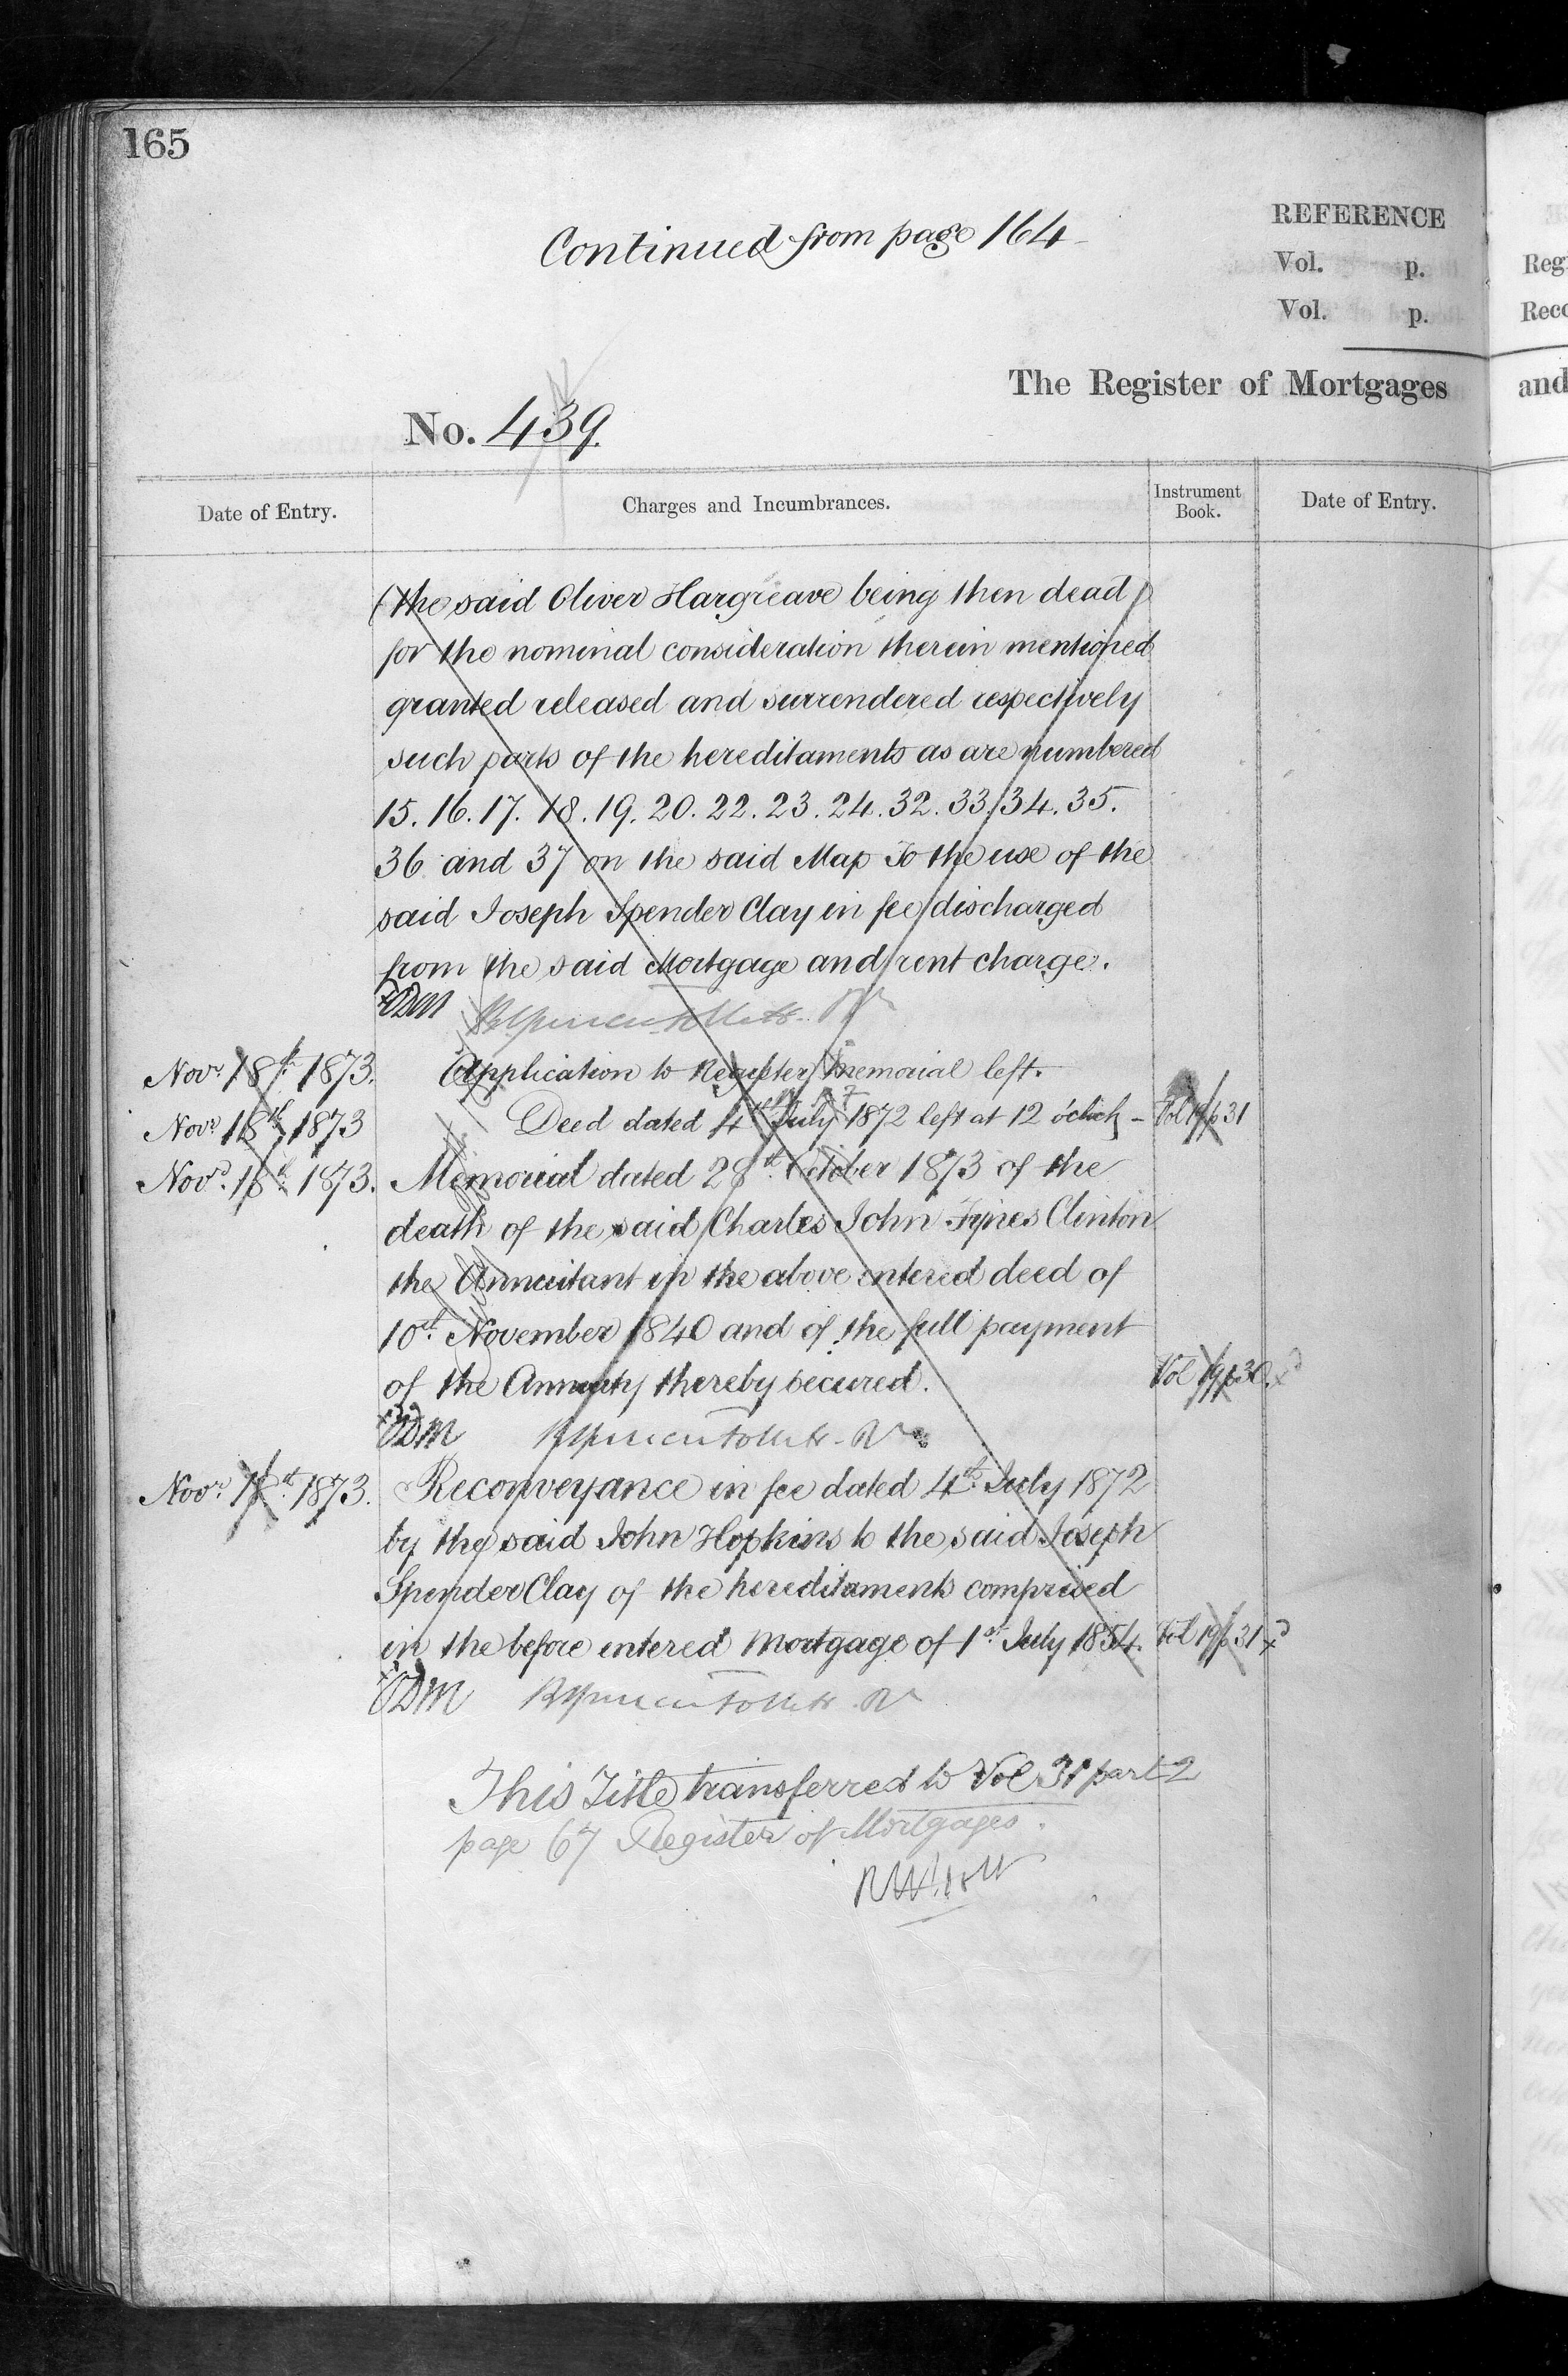 165
Continued from page 164
REFERENCE
Vol. p.
Vol. p.
The Register of Mortgages
No. 439.
Date of Entry.
Charges and Incumbrances.
Instrument Book.
Date of Entry.
(the said Oliver Hargreave being then dead)
for the nominal consideration therein mentioned
granted released and surrendered respectively
such parts of the hereditaments as are numbered
15. 16. 17. 18. 19. 20. 22. 23. 24. 32. 33. 34. 35.
36 and 37 on the said Map To the use of the
said Joseph Spender Clay in fee discharged
from the said Mortgage and rent charge.
Novr. 18th 1873. Application to Register Memorial left.
Novr. 18th 1873 Deed dated 4th July 1872 left at 12 o'clock - Vol 19 p 31
Novr. 18th 1873. Memorial dated 28th October 1873 of the
death of the said Charles John Fynes Clinton
the Annuitant in the above entered deed of
10th November 1840 and of the full payment
of the Annuity thereby secured. Vol 19 p 30.
Novr. 18th 1873. Reconveyance in fee dated 4th July 1872
by the said John Hopkins to the said Joseph
Spender Clay of the hereditaments comprised
in the before entered Mortgage of 1st July 1854. Vol 19 p 31
This Title transferred to Vol 31 part 2
page 67 Register of Mortgages.
Reg
Rec
and